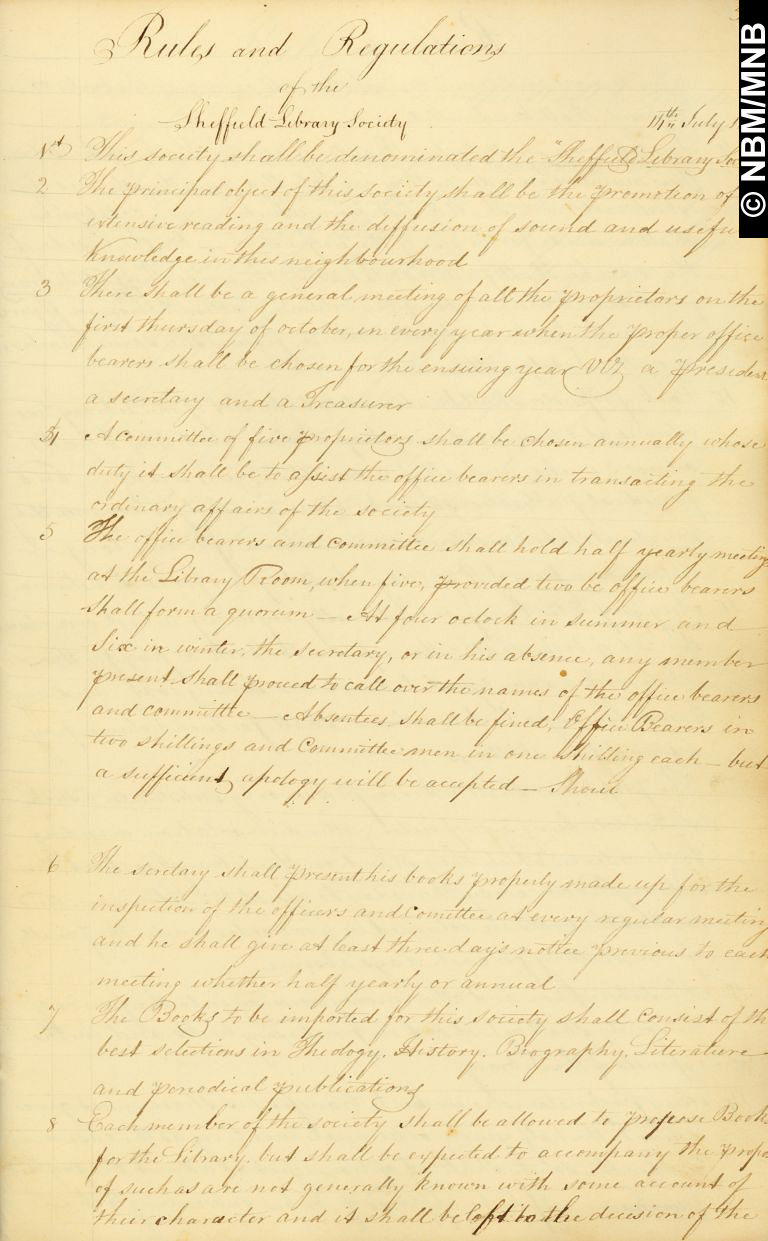 Rules and Regulations
of the
Sheffield Library Society
14th July
1st This society shall be denominated the "Sheffield Library Soc
2 The principal object of this society shall be the promotion of
extensive reading and the diffusion of sound and usefu
Knowledge in this neighbourhood
3 There shall be a general meeting of all the proprietors on the
first thursday of october, in every year when the proper office
bearers shall be chosen for the ensuing year Viz a Presiden
a secretary and a Treasurer
4 A committee of five proprietors shall be chosen annually whose
duty it shall be to assist the office bearers in transacting the
ordinary affairs of the society
5 The office bearers and committee shall hold half yearly meeting
at the Library Room, when five, provided two be office bearers
shall form a quorum — At four oclock in summer and
Six in winter, the secretary, or in his absence, any member
present shall proceed to call over the names of the office bearers
and committee — Absentees shall be fined, Office Bearers in
two shillings and Committee men in one shilling each — but
a sufficient apology will be accepted —
6 The secretary shall present his books properly made up for the
inspection of the officers and comittee at every regular meeting
and he shall give at least three days notice previous to each
meeting whether half yearly or annual
7 The Books to be imported for this society shall consist of th
best selections in Theology. History. Biography. Literature
and periodical publications
8 Each member of the society shall be allowed to propose Book
for the Library. but shall be expected to accompany the propo
of such as are not generally known with some account of
their character and it shall be left to the decision of the
© NBM/MNB